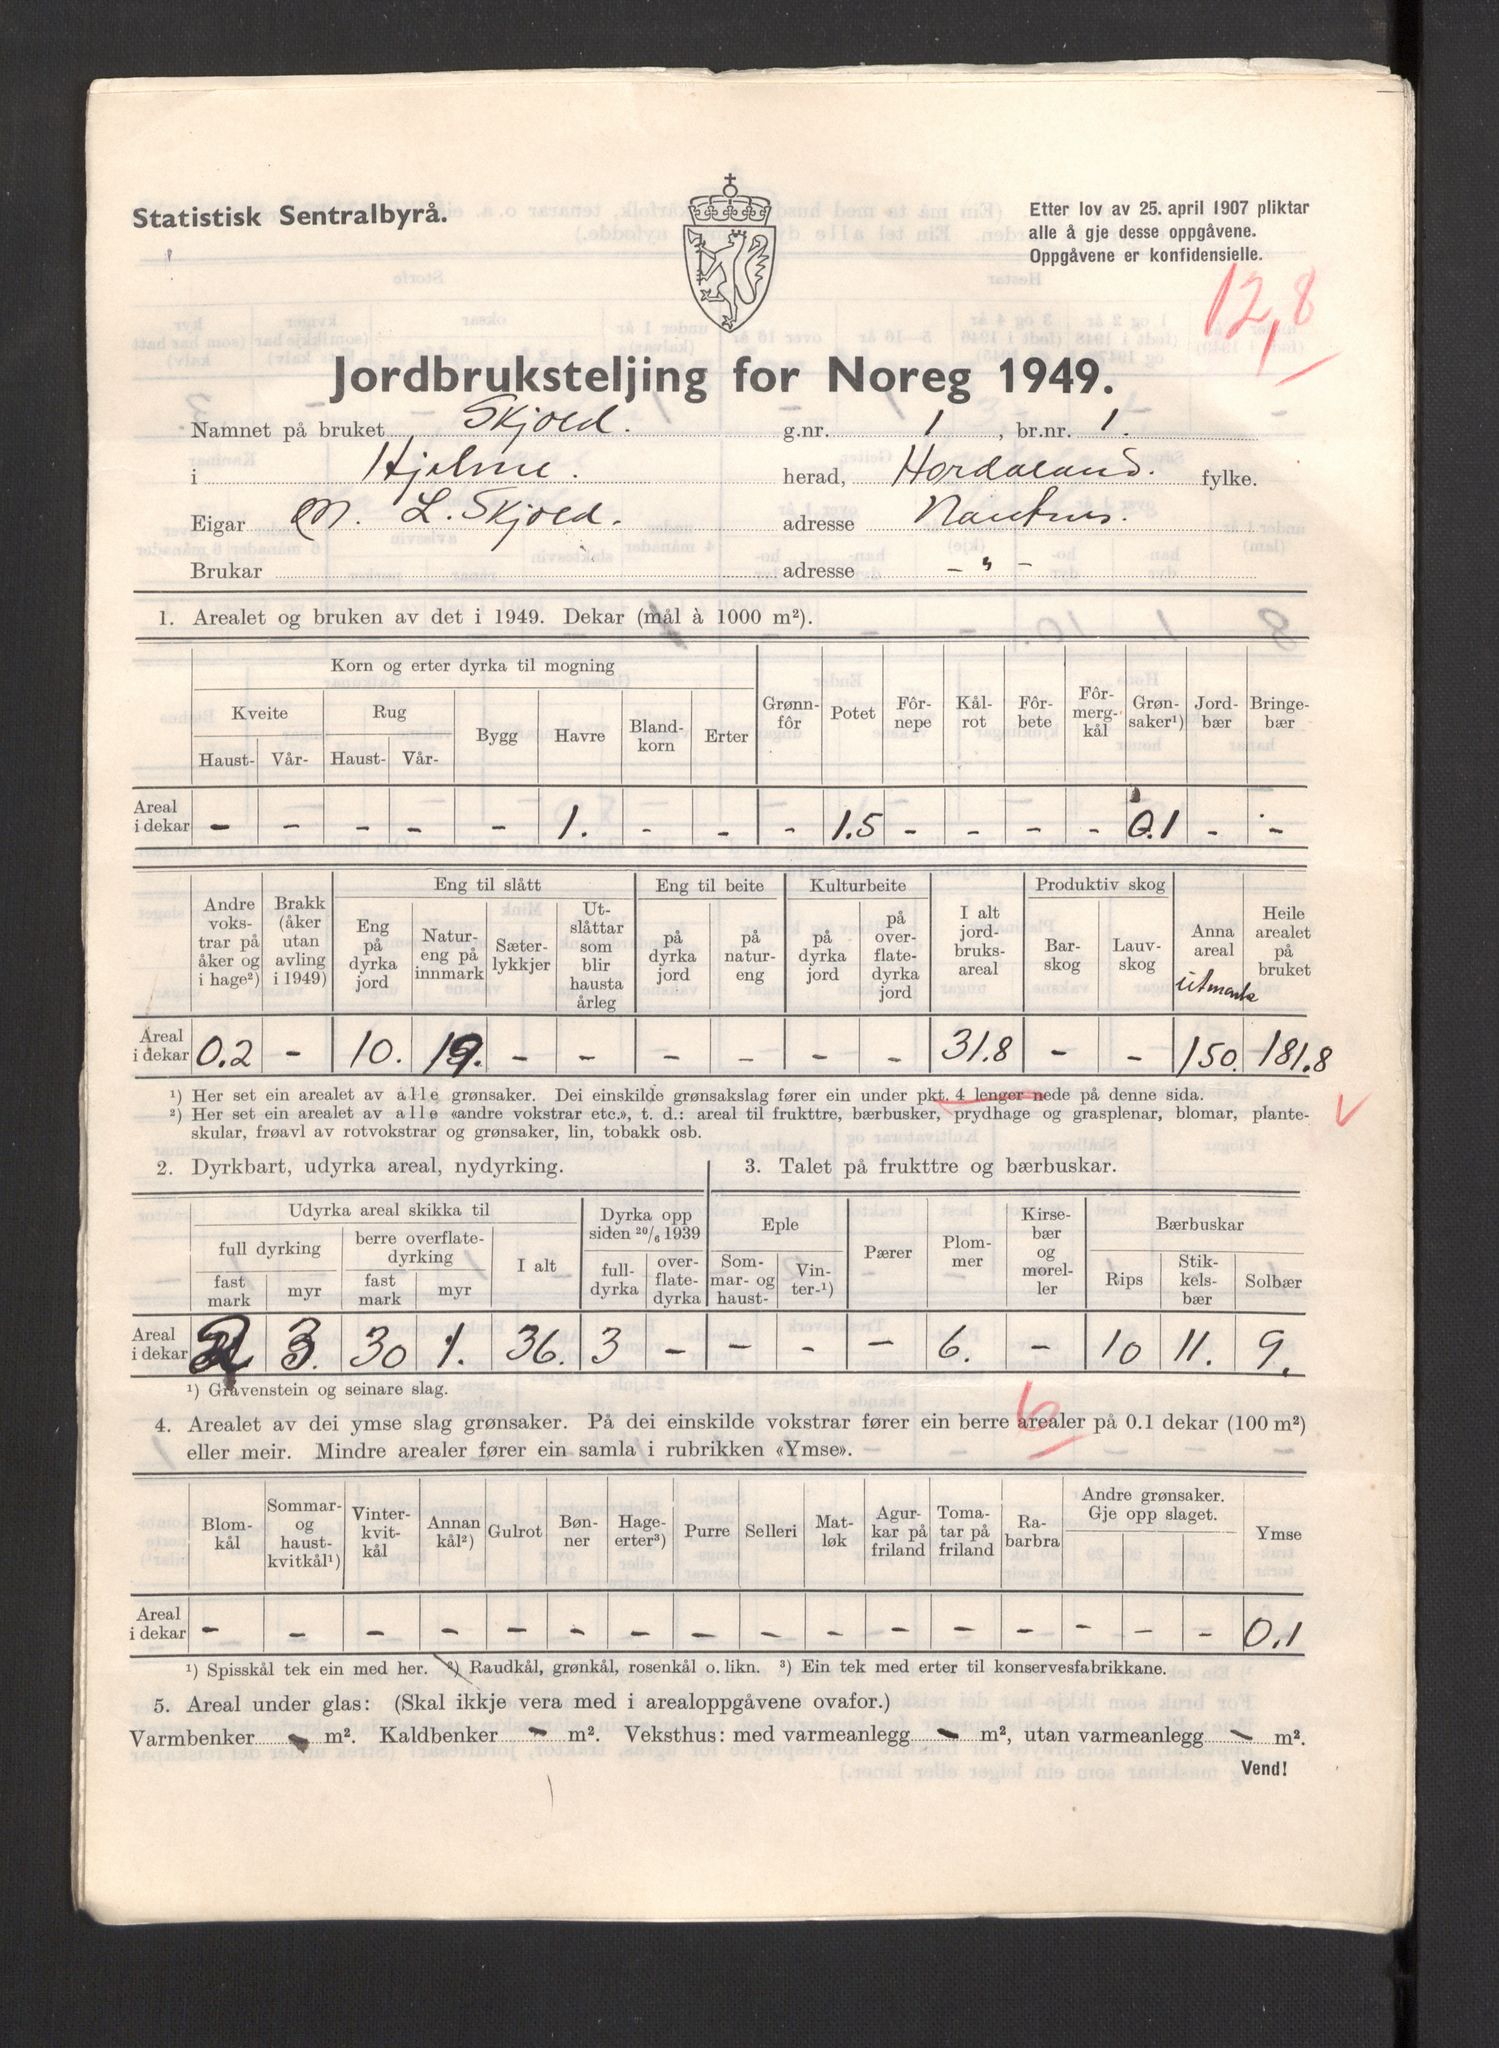 Statistisk Sentralbyrå.
Etter lov av 25. april 1907 pliktar
alle å gje desse oppgåvene.
Oppgåvene er konfidensielle.
12,8
Jordbruksteljing for Noreg 1949.
Namnet på bruket Skjold. g.nr. 1, br.nr. 1.
i Hjelme. herad, Hordaland. fylke.
Eigar M. L. Skjold. adresse
Brukar adresse – " –
1. Arealet og bruken av det i 1949. Dekar (mål à 1000 m²).
Korn og erter dyrka til mogning
Kveite Rug Bygg Havre Bland-korn Erter Grønn-fôr Potet Fôr-nepe Kål-rot Fôr-bete Fôr-merg-kål Grøn-saker¹) Jord-bær Bringe-bær
Haust- Vår- Haust- Vår-
Areal i dekar – – – – – 1. – – – 1.5 – – – – 0.1 – –
Eng til slått Eng til beite Kulturbeite Produktiv skog
Andre voks-trar på åker og i hage²) Brakk (åker utan avling i 1949) Eng på dyrka jord Natur-eng på innmark Sæter-lykkjer Ut-slåttar som blir hausta årleg på dyrka jord på natur-eng på dyrka jord på over-flate-dyrka jord I alt jord-bruks-areal Bar-skog Lauv-skog Anna areal utmark Heile arealet på bruket
Areal i dekar 0.2 – 10. 19. – – – – – – 31.8 – – 150. 181.8
¹) Her set ein arealet av alle grønsaker. Dei einskilde grønsakslag fører ein under pkt. 4 lenger nede på denne sida.
²) Her set ein arealet av alle «andre vokstrar etc.», t. d.: areal til frukttre, bærbusker, prydhage og grasplenar, blomar, plante-
skular, frøavl av rotvokstrar og grønsaker, lin, tobakk osb.
2. Dyrkbart, udyrka areal, nydyrking.
3. Talet på frukttre og bærbuskar.
Udyrka areal skikka til Dyrka opp siden 20/6 1939 Eple Pærer Plom-mer Kirse-bær og morel-ler Bærbuskar
full dyrking berre overflate-dyrking I alt full-dyrka over-flate-dyrka Som-mar- og haust- Vin-ter-¹) Rips Stik-kels-bær Solbær
fast mark myr fast mark myr
Areal i dekar 2 3. 30 1. 36. 3 – – – – 6. – 10 11. 9.
¹) Gravenstein og seinare slag.
6
4. Arealet av dei ymse slag grønsaker. På dei einskilde vokstrar fører ein berre arealer på 0.1 dekar (100 m²)
eller meir. Mindre arealer fører ein samla i rubrikken «Ymse».
Blom-kål Sommar- og haust-kvitkål¹) Vinter-kvit-kål Annan kål²) Gulrot Bøn-ner Hage-erter³) Purre Selleri Mat-løk Agur-kar på friland Toma-tar på friland Ra-barbra Andre grønsaker. Gje opp slaget. Ymse
Areal i dekar – – – – – – – – – – – – – – – – 0.1
¹) Spisskål tek ein med her. ²) Raudkål, grønkål, rosenkål o. likn. ³) Ein tek med erter til konservesfabrikkane.
5. Areal under glas: (Skal ikkje vera med i arealoppgåvene ovafor.)
Varmbenker – m². Kaldbenker – m². Veksthus: med varmeanlegg – m², utan varmeanlegg – m².
Vend!